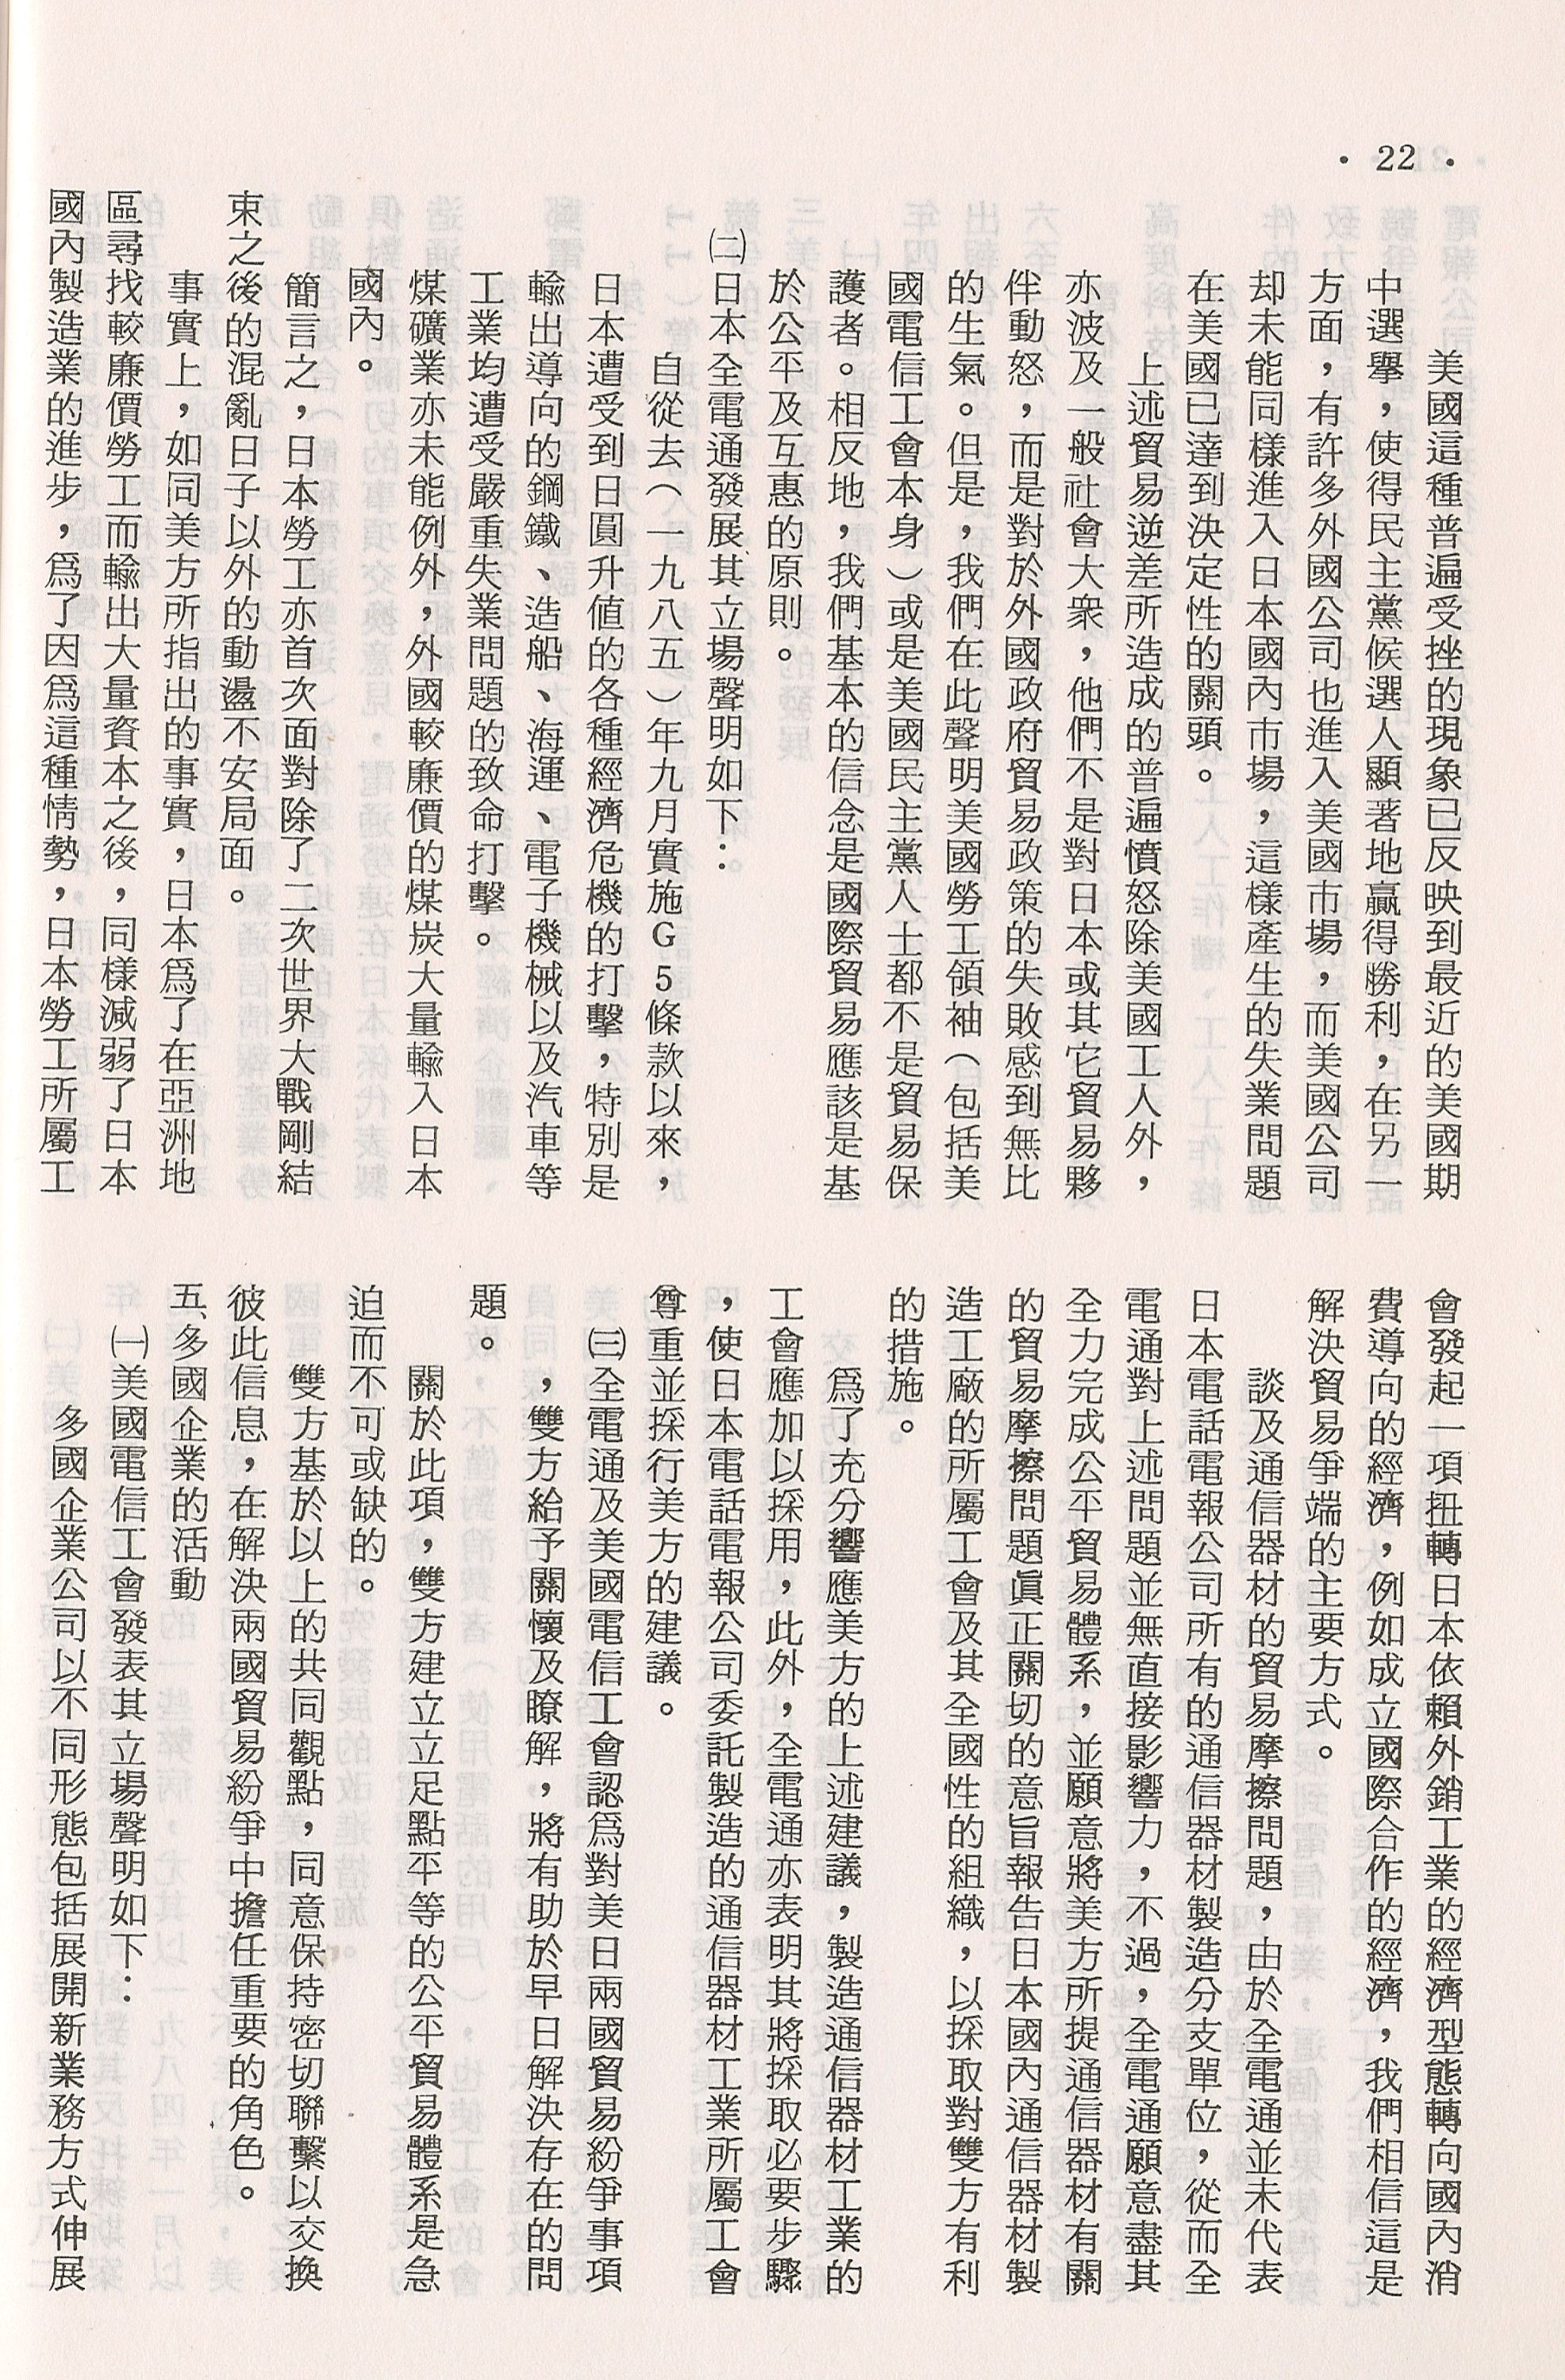 · 22 ·
美國這種普遍受挫的現象已反映到最近的美國期
中選舉，使得民主黨候選人顯著地贏得勝利，在另一
方面，有許多外國公司也進入美國市場，而美國公司
却未能同樣進入日本國內市場，這樣產生的失業問題
在美國已達到決定性的關頭。
上述貿易逆差所造成的普遍憤怒除美國工人外，
亦波及一般社會大衆，他們不是對日本或其它貿易夥
伴動怒，而是對於外國政府貿易政策的失敗感到無比
的生氣。但是，我們在此聲明美國勞工領袖（包括美
國電信工會本身）或是美國民主黨人士都不是貿易保
護者。相反地，我們基本的信念是國際貿易應該是基
於公平及互惠的原則。
㈡日本全電通發展其立場聲明如下：
自從去（一九八五）年九月實施G5條款以來，
日本遭受到日圓升值的各種經濟危機的打擊，特別是
輸出導向的鋼鐵、造船、海運、電子機械以及汽車等
工業均遭受嚴重失業問題的致命打擊。
煤礦業亦未能例外，外國較廉價的煤炭大量輸入日本
國內。
簡言之，日本勞工亦首次面對除了二次世界大戰剛結
束之後的混亂日子以外的動盪不安局面。
事實上，如同美方所指出的事實，日本爲了在亞洲地
區尋找較廉價勞工而輸出大量資本之後，同樣減弱了日本
國內製造業的進步，爲了因爲這種情勢，日本勞工所屬工
會發起一項扭轉日本依賴外銷工業的經濟型態轉向國內消
費導向的經濟，例如成立國際合作的經濟，我們相信這是
解決貿易爭端的主要方式。
談及通信器材的貿易摩擦問題，由於全電通並未代表
日本電話電報公司所有的通信器材製造分支單位，從而全
電通對上述問題並無直接影響力，不過，全電通願意盡其
全力完成公平貿易體系，並願意將美方所提通信器材有關
的貿易摩擦問題眞正關切的意旨報告日本國內通信器材製
造工廠的所屬工會及其全國性的組織，以採取對雙方有利
的措施。
爲了充分響應美方的上述建議，製造通信器材工業的
工會應加以採用，此外，全電通亦表明其將採取必要步驟
，使日本電話電報公司委託製造的通信器材工業所屬工會
尊重並採行美方的建議。
㈢全電通及美國電信工會認爲對美日兩國貿易紛爭事項
，雙方給予關懷及瞭解，將有助於早日解決存在的問
題。
關於此項，雙方建立立足點平等的公平貿易體系是急
迫而不可或缺的。
雙方基於以上的共同觀點，同意保持密切聯繫以交換
彼此信息，在解決兩國貿易紛爭中擔任重要的角色。
五、多國企業的活動
㈠美國電信工會發表其立場聲明如下：
多國企業公司以不同形態包括展開新業務方式伸展